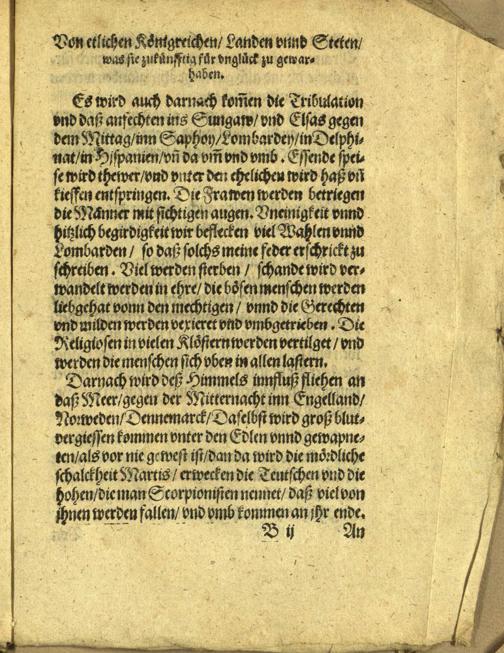 Von etlichen Königreichen/ Landen vnnd Steten/
was sie zukünfftig für vnglück zu gewar-
haben.
Es wird auch darnach kom̃en die Tribulation
vnd daß anfechten ins Sungaw/ vnd Elsas gegen
dem Mittag/ inn Saphoy/ Lombardey/ in Delphi-
nat/ in Hispanien/ vñ da vm̃ vnd vmb. Essende spei-
se wird thewer/ vnd vnter den ehelichen wird haß vñ
kieffen entspringen. Die Frawen werden betriegen
die Männer mit sichtigen augen. Vneinigkeit vnnd
hitzlich begirdigkeit wir beflecken viel Wahlen vnnd
Lombarden/ so daß solchs meine feder erschrickt zu
schreiben. Viel werden sterben/ schande wird ver-
wandelt werden in ehre/ die bösen menschen werden
liebgehat vonn den mechtigen/ vnnd die Gerechten
vnd milden werden vexieret vnd vmbgetrieben. Die
Religiosen in vielen Klöstern werden vertilget/ vnd
werden die menschen sich vben in allen lastern.
Darnach wird deß Himmels innfluß fliehen an
daß Meer/ gegen der Mitternacht inn Engelland/
Norweden/ Dennemarck/ Daselbst wird groß blut-
vergiessen kommen vnter den Edlen vnnd gewapne-
ten/ als vor nie gewest ist/ dan da wird die mördliche
schalckheit Martis/ erwecken die Teutschen vnd die
hohen/ die man Scorpionisten nennet/ daß viel von
jhnen werden fallen/ vnd vmb kommen an jhr ende.
B ij An